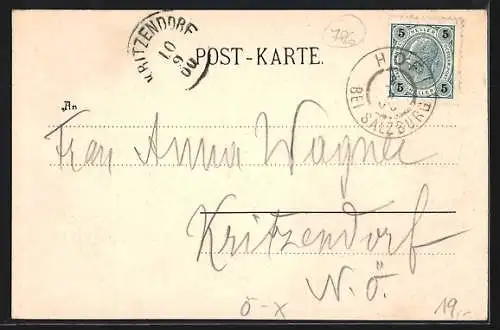 KRITZENDORF
10
9
00
796
POST-KARTE.
5 5
5 5
HOF
BEI SALZBURG
An
Frau Anna Wagner
Kritzendorf
N.Ö.
ö-x
19,-